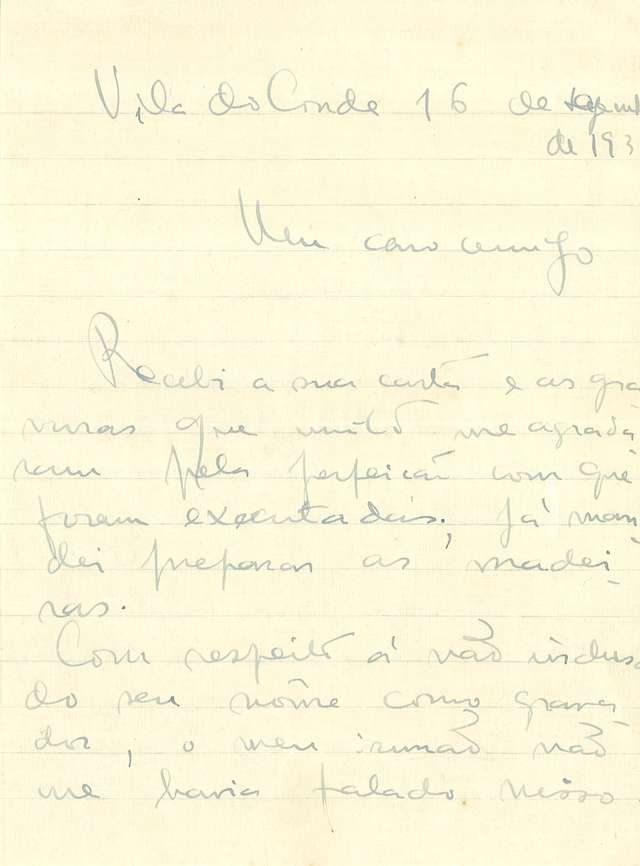 Vila do Conde 16 de
de 193
Meu caro amigo
Recebi a sua carta e as gra
vuras que muito me agrada
ram pela perfeição com que
foram executadas. Já man
dei preparar as madei
ras.
Com respeito á não inclus
do seu nome como grava
dor, o meu irmão não
me havia falado nisso.